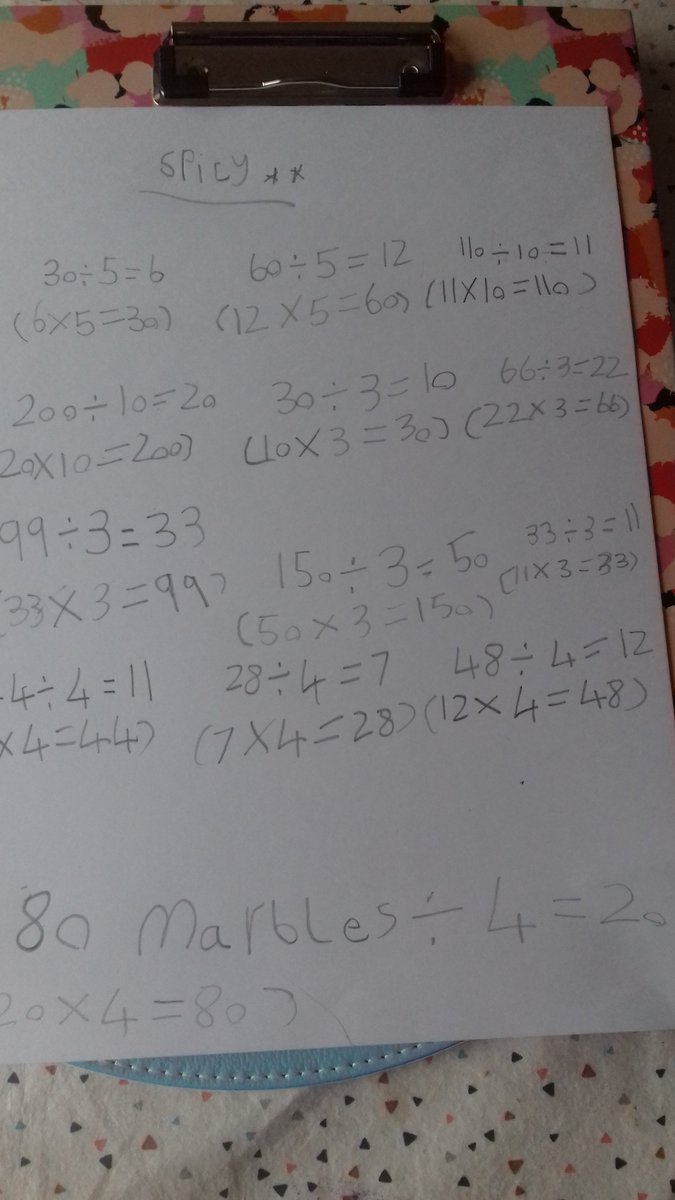 Spicy **
30÷5=6 60÷5=12 110÷10=11
(6×5=30) (12×5=60) (11×10=110)
200÷10=20 30÷3=10 66÷3=22
20×10=200) (10×3=30) (22×3=66)
99÷3=33 150÷3=50 33÷3=11
(33×3=99) (50×3=150) (11×3=33)
4÷4=11 28÷4=7 48÷4=12
×4=44) (7×4=28) (12×4=48)
80 Marbles÷4=20
20×4=80)